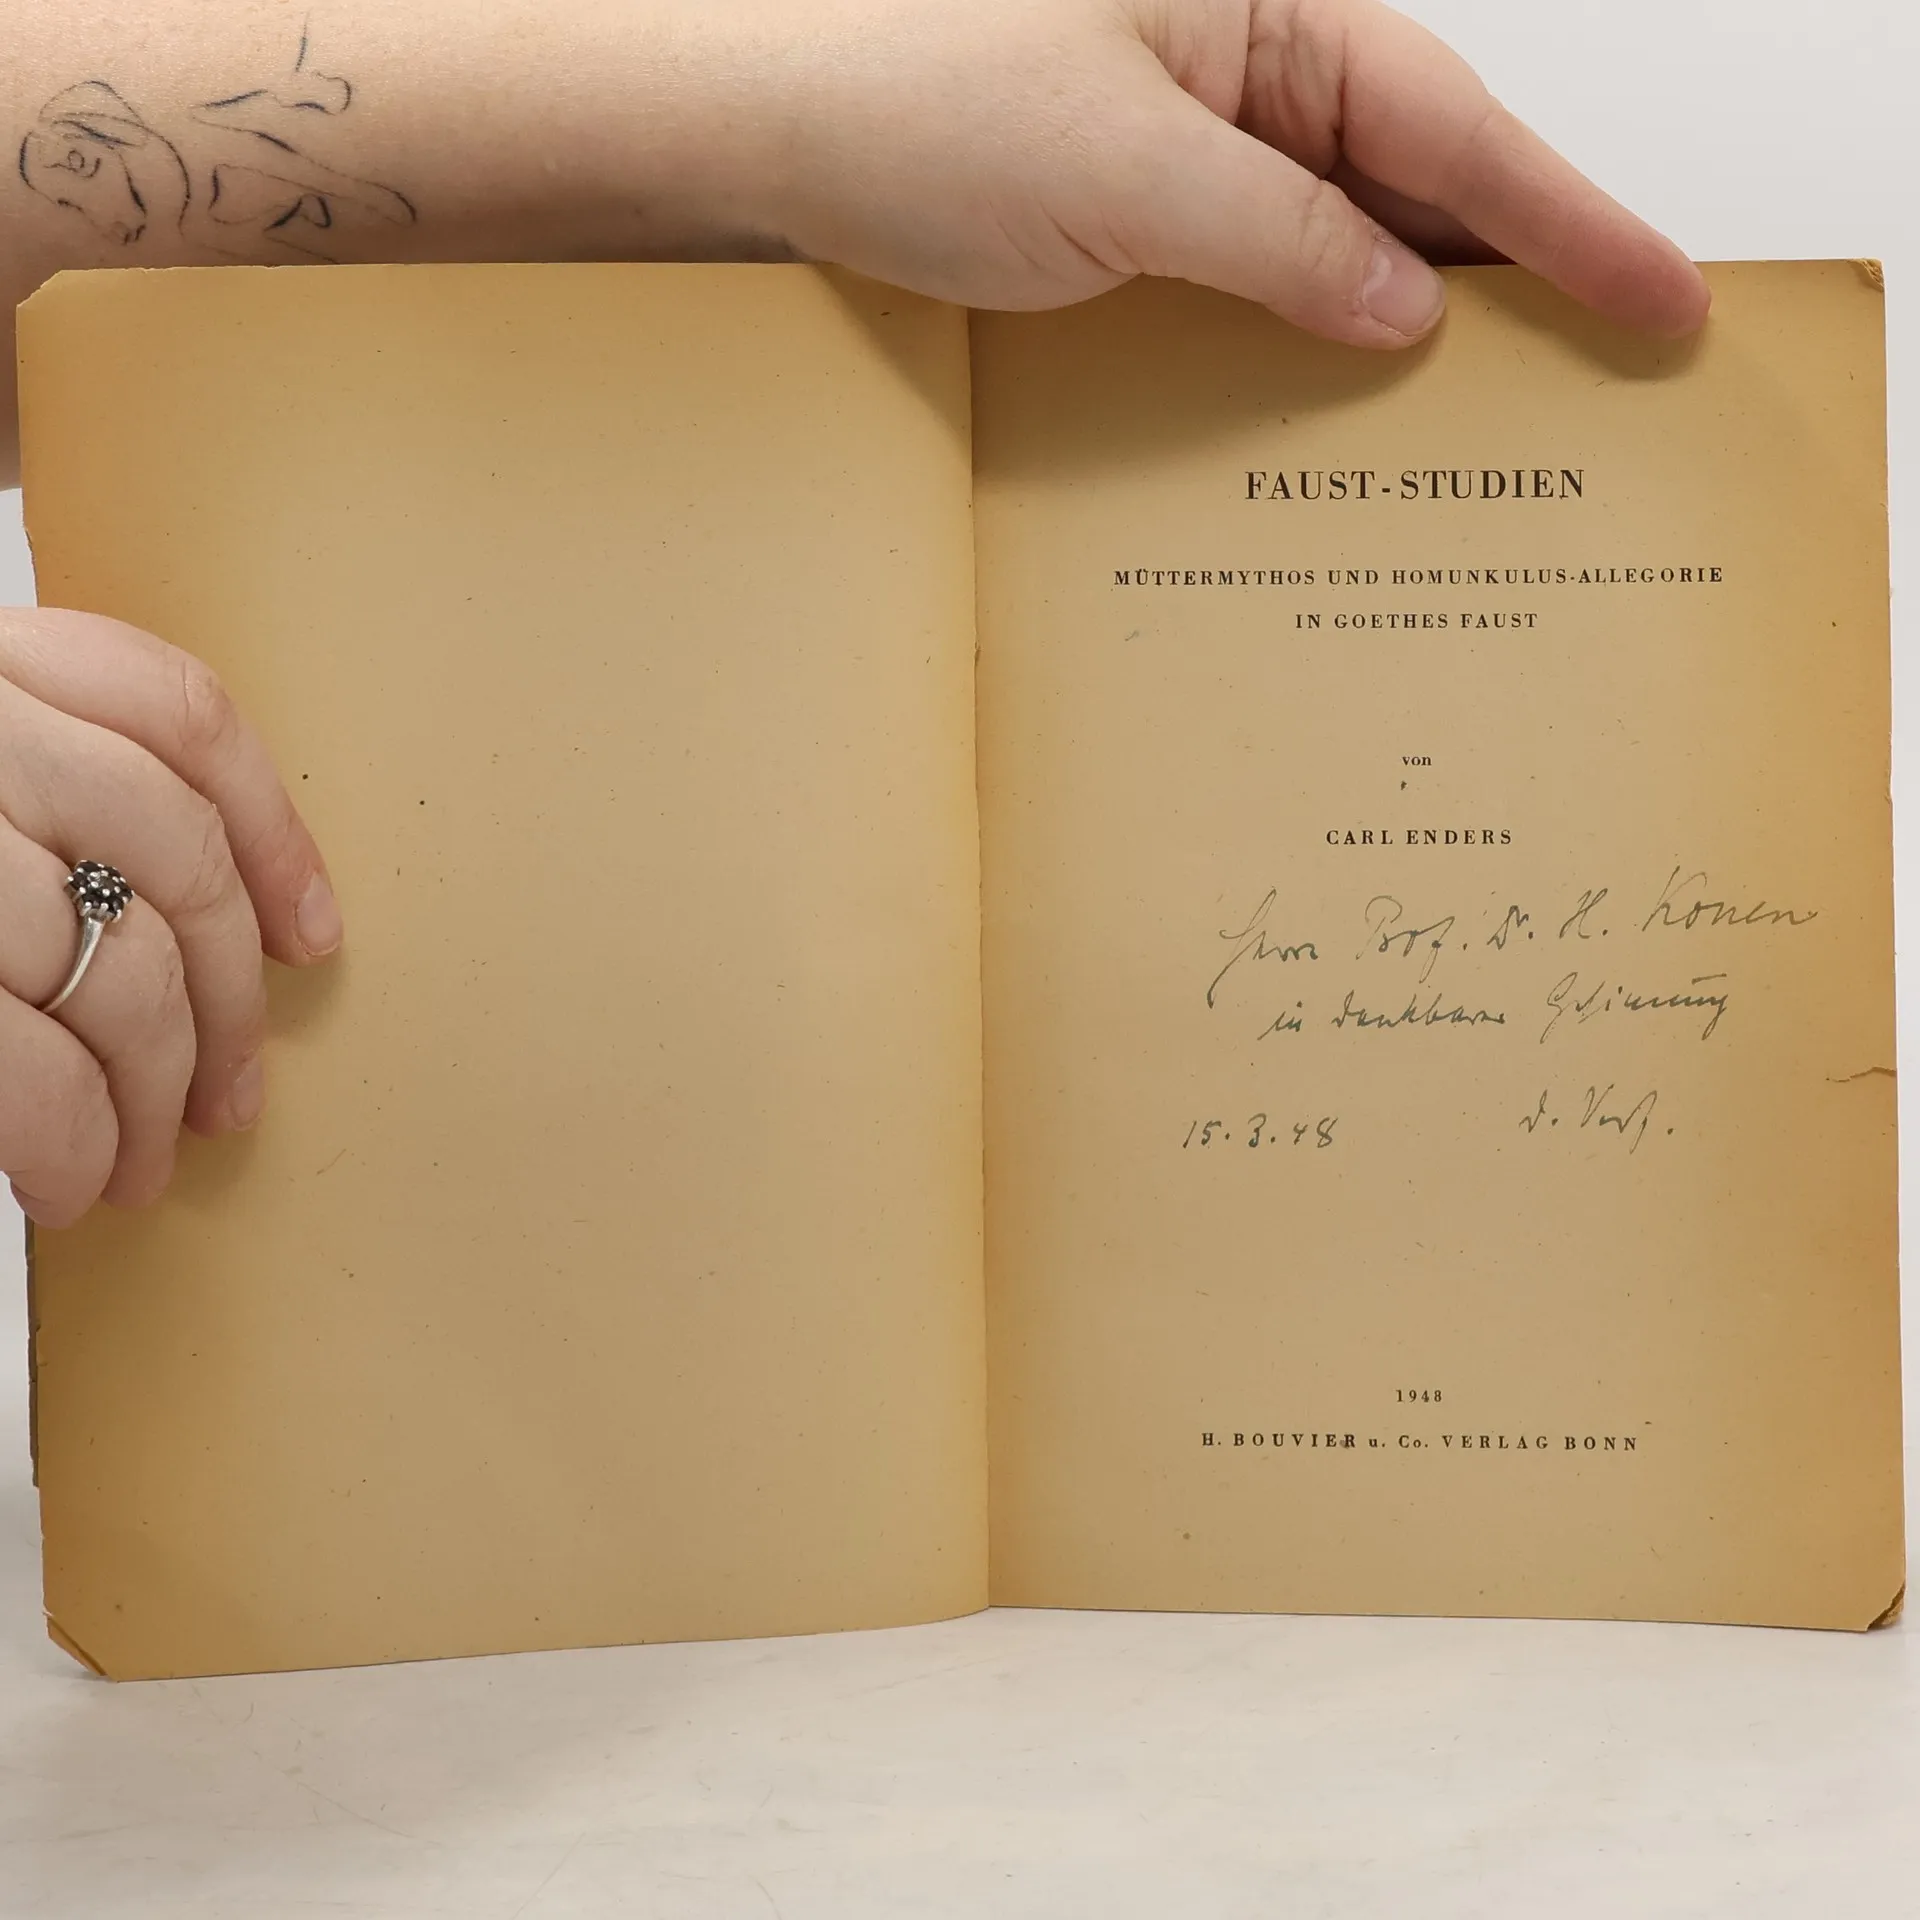 FAUST-STUDIEN
MÜTTERMYTHOS UND HOMUNKULUS-ALLEGORIE
IN GOETHES FAUST
von
CARL ENDERS
Herrn Prof. Dr. H. Konen
in dankbarer Gesinnung
15.3.48 d. Verf.
1948
H. BOUVIER u. Co. VERLAG BONN